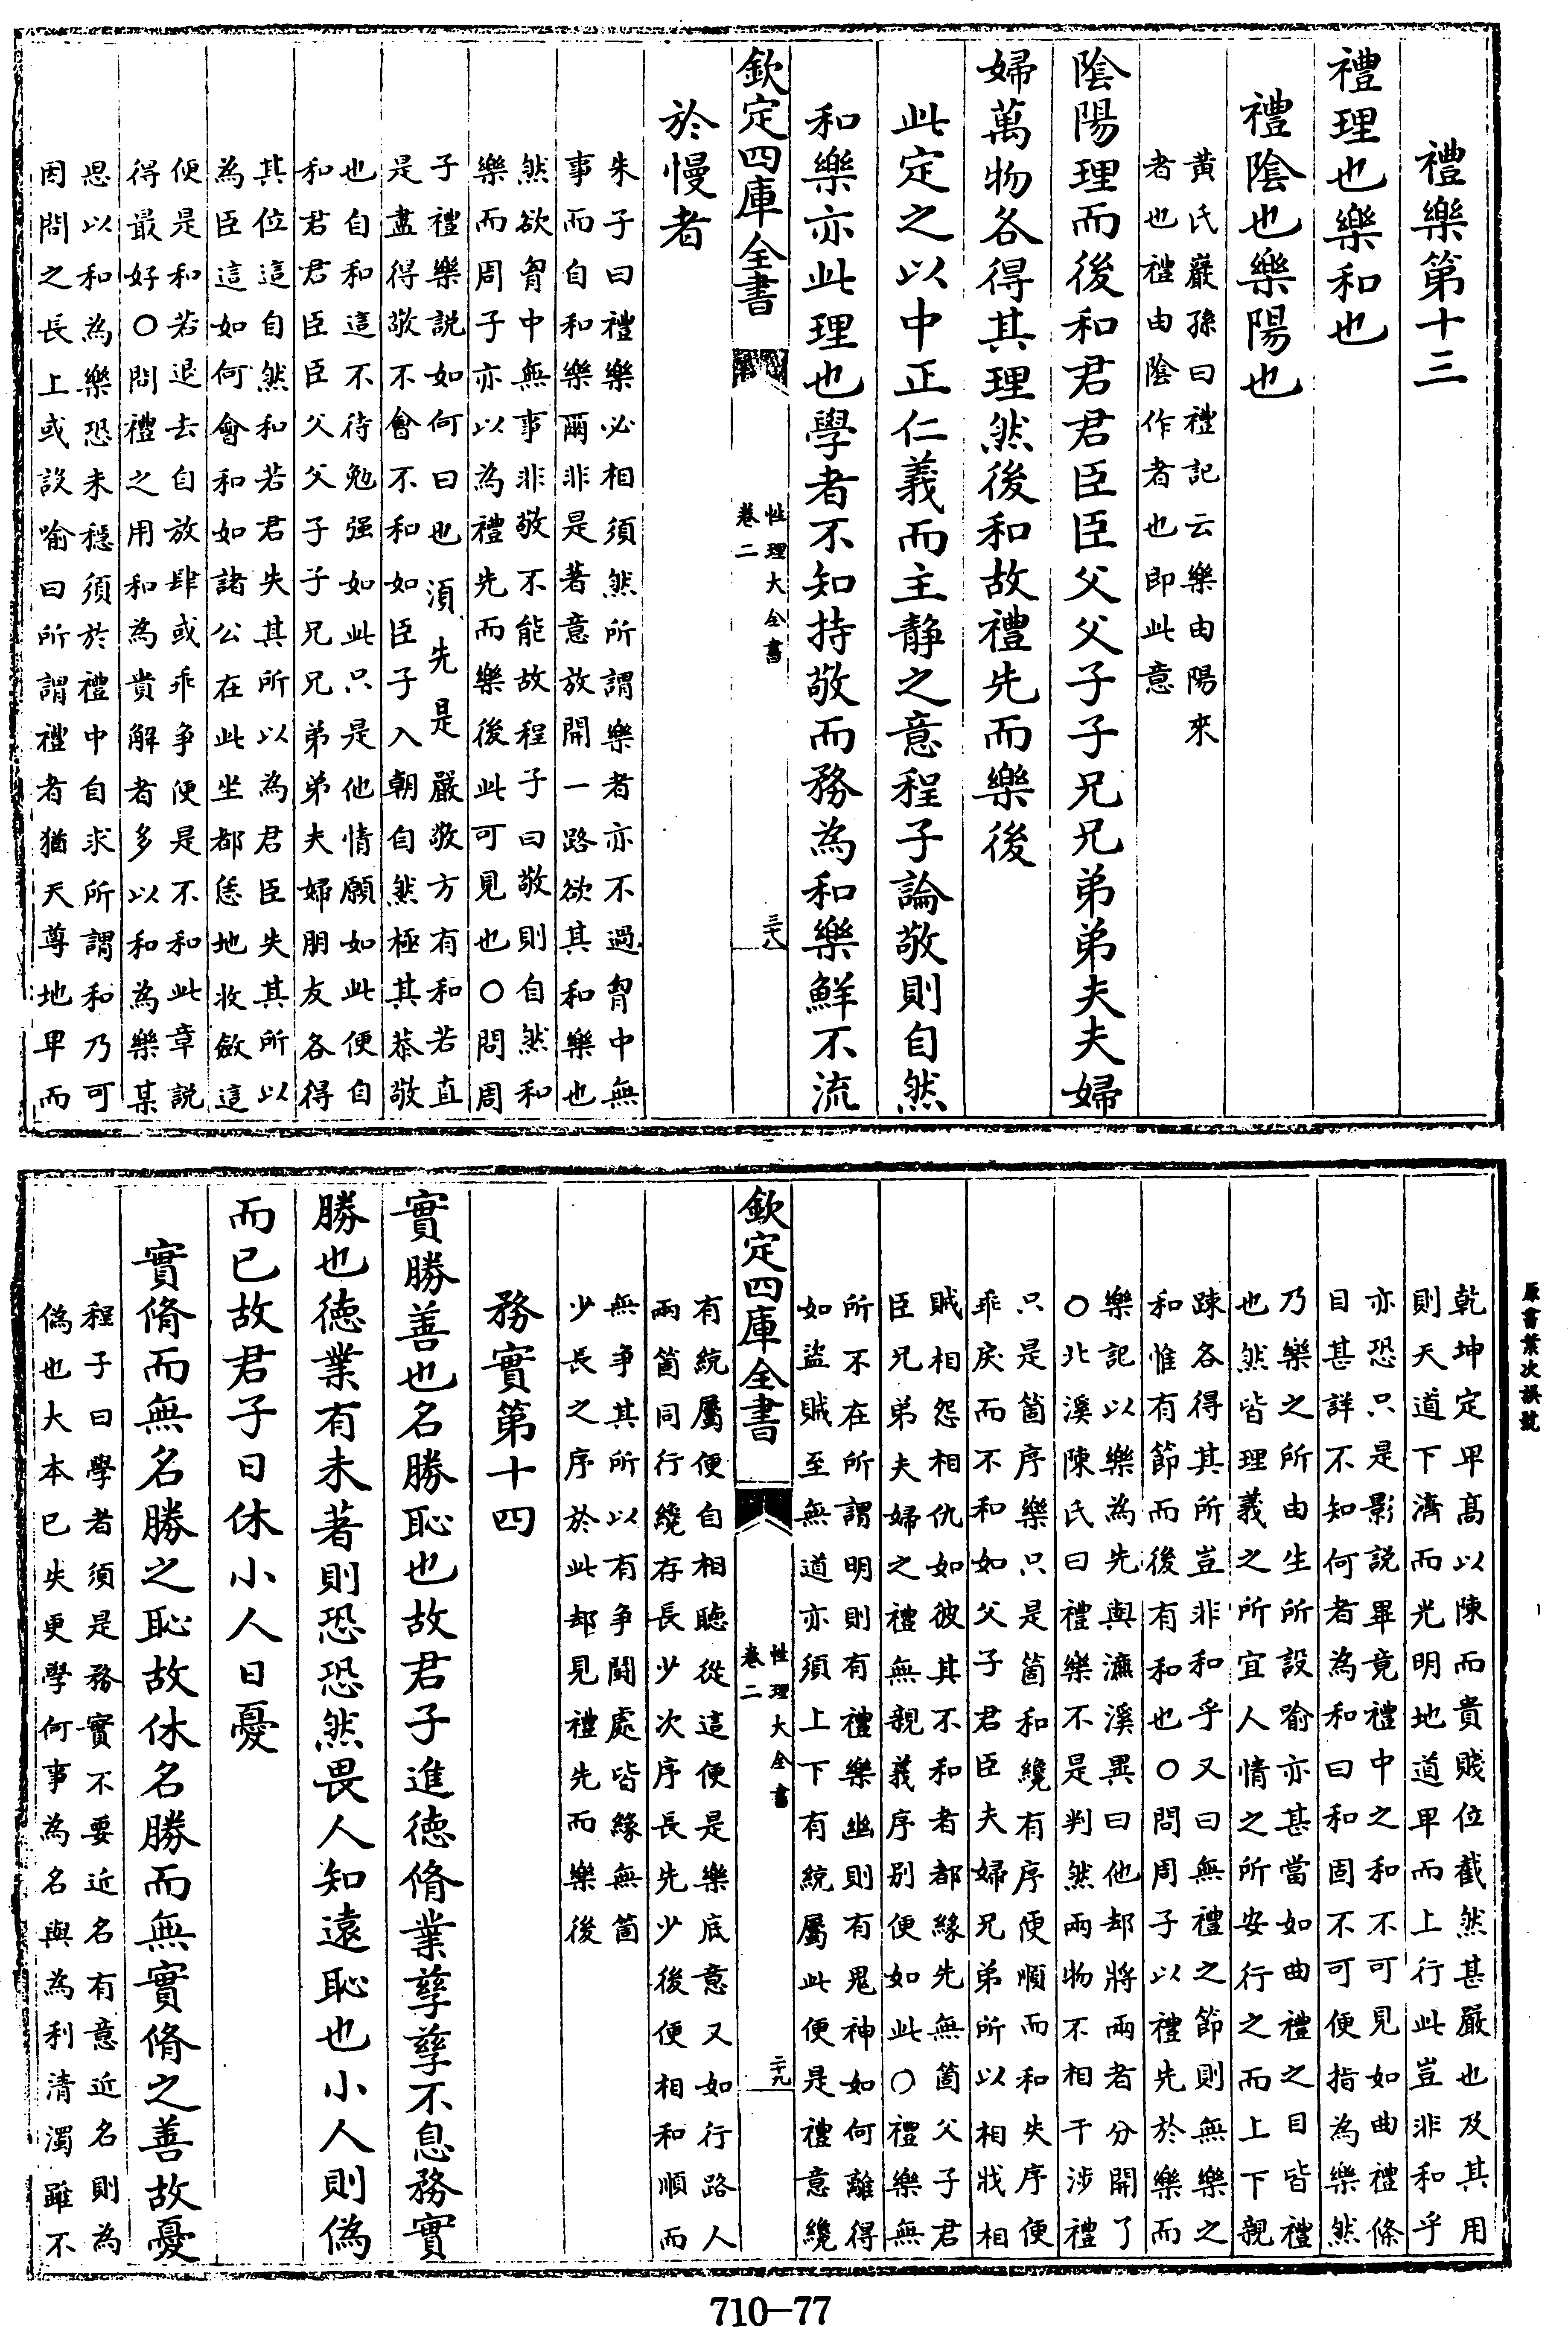 禮樂第十三
禮理也樂和也
禮陰也樂陽也
黄氏巖孫曰禮記云樂由陽來
者也禮由陰作者也即此意
陰陽理而後和君君臣臣父父子子兄兄弟弟夫夫婦
婦萬物各得其理然後和故禮先而樂後
此定之以中正仁義而主靜之意程子論敬則自然
和樂亦此理也學者不知持敬而務為和樂鮮不流
欽定四庫全書
性理大全書
卷二
三十八
於慢者
朱子曰禮樂必相須然所謂樂者亦不過胷中無
事而自和樂爾非是著意放開一路欲其和樂也
然欲胷中無事非敬不能故程子曰敬則自然和
樂而周子亦以為禮先而樂後此可見也○問周
子禮樂說如何曰也須先是嚴敬方有和若直
是盡得敬不會不和如臣子入朝自然極其恭敬
也自和這不待勉强如此只是他情願如此便自
和君君臣臣父父子子兄兄弟弟夫婦朋友各得
其位這自然和若君失其所以為君臣失其所以
為臣這如何會和如諸公在此坐都恁地收斂這
便是和若退去自放肆或乖爭便是不和此章說
得最好○問禮之用和為貴解者多以和為樂某
思以和為樂恐未穩須於禮中自求所謂和乃可
因問之長上或設喻曰所謂禮者猶天尊地卑而
原書葉次誤號
乾坤定卑高以陳而貴賤位截然甚嚴也及其用
則天道下濟而光明地道卑而上行此豈非和乎
亦恐只是影說畢竟禮中之和不可見如曲禮條
目甚詳不知何者為和曰和固不可便指為樂然
乃樂之所由生所設喻亦甚當如曲禮之目皆禮
也然皆理義之所宜人情之所安行之而上下親
踈各得其所豈非和乎又曰無禮之節則無樂之
和惟有節而後有和也○問周子以禮先於樂而
樂記以樂為先與濂溪異曰他却將兩者分開了
○北溪陳氏曰禮樂不是判然兩物不相干涉禮
只是箇序樂只是箇和纔有序便順而和失序便
乖戾而不和如父子君臣夫婦兄弟所以相戕相
賊相怨相仇如彼其不和者都緣先無箇父子君
臣兄弟夫婦之禮無親義序別便如此○禮樂無
所不在所謂明則有禮樂幽則有鬼神如何離得
如盜賊至無道亦須上下有統屬此便是禮意纔
欽定四庫全書
性理大全書
卷二
三十九
有統屬便自相聽從這便是樂底意又如行路人
兩箇同行纔存長少次序長先少後便相和順而
無爭其所以有爭鬪處皆緣無箇
少長之序於此却見禮先而樂後
務實第十四
實勝善也名勝恥也故君子進德脩業孳孳不息務實
勝也德業有未著則恐恐然畏人知遠恥也小人則偽
而已故君子日休小人日憂
實脩而無名勝之恥故休名勝而無實脩之善故憂
程子曰學者須是務實不要近名有意近名則為
偽也大本已失更學何事為名與為利清濁雖不
710—77